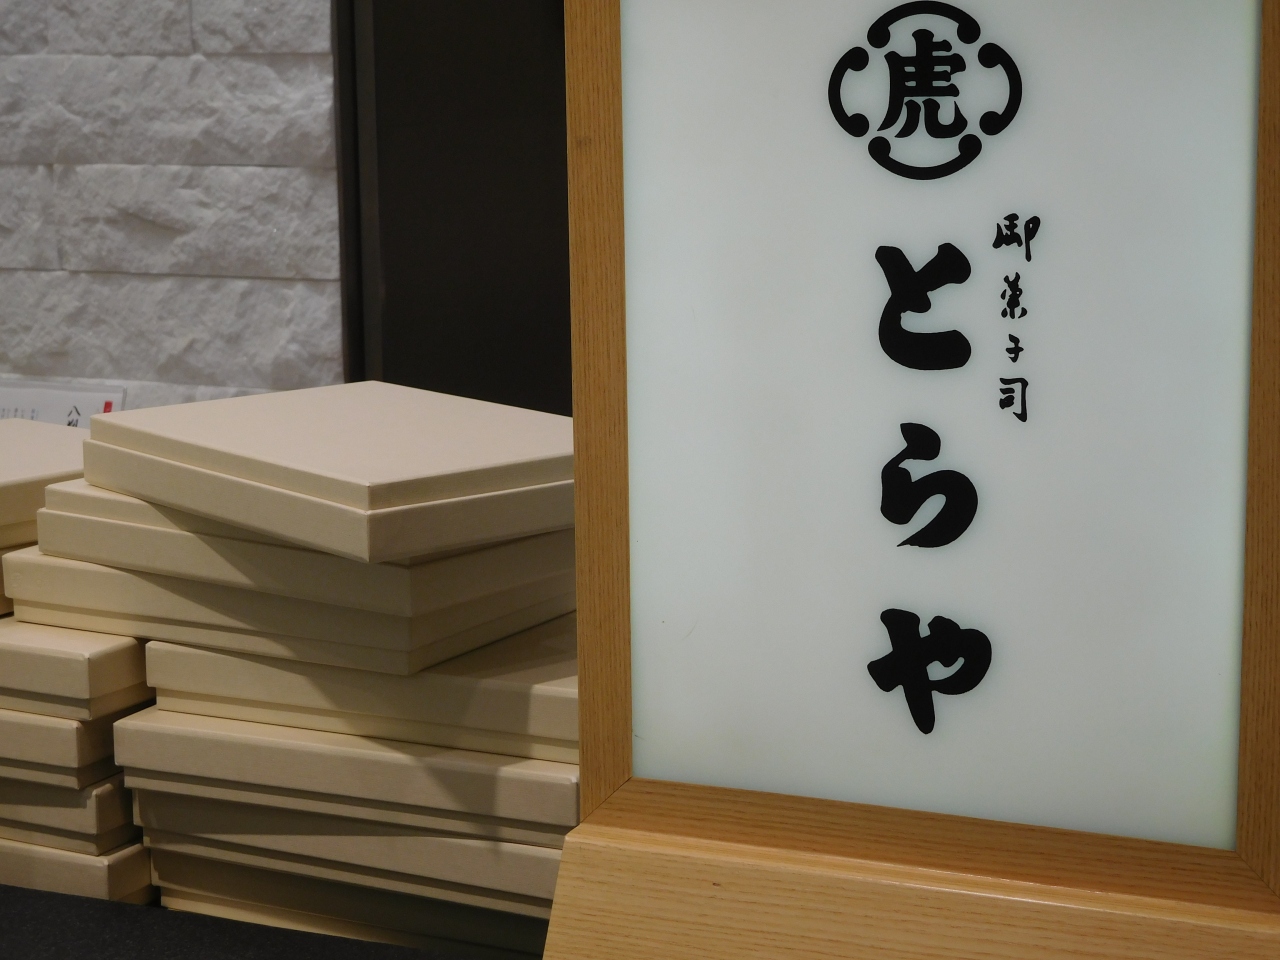 虎
御菓子司
とらや